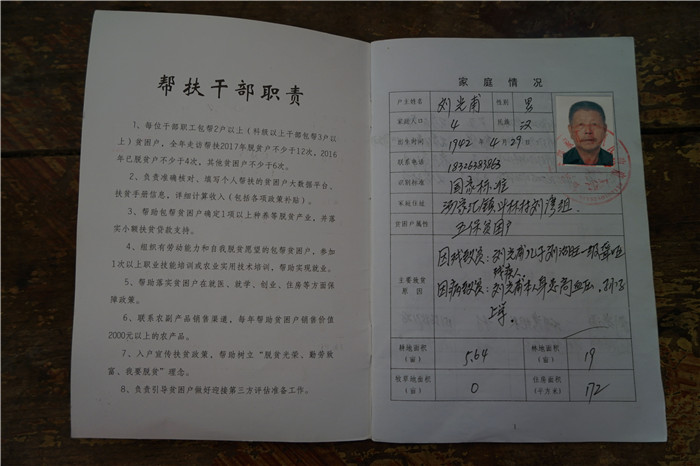 帮扶干部职责
1、每位干部职工包帮2户以上(科级以上干部包帮3户以
上)贫困户,全年走访帮扶2017年脱贫户不少于12次,2016
年已脱贫户不少于4次,其他贫困户不少于6次。
2、负责准确核对、填写个人帮扶的贫困户大数据平台、
扶贫手册信息,详细计算收入(包括各项政策补贴)。
3、帮助包帮贫困户确定1项以上种养等脱贫产业,并落
实小额扶贫贷款支持。
4、组织有劳动能力和自我脱贫愿望的包帮贫困户,参加
1次以上职业技能培训或农业实用技术培训,帮助实现就业。
5、帮助落实贫困户在就医、就学、创业、住房等方面保
障政策。
6、联系农副产品销售渠道,每年帮助贫困户销售价值
2000元以上的农产品。
7、入户宣传扶贫政策,帮助树立“脱贫光荣、勤劳致
富、我要脱贫”理念。
8、负责引导贫困户做好迎接第三方评估准备工作。
家庭情况
户主姓名 刘光甫 性别 男
家庭人口 4 民族 汉
出生时间 1942年4月29日
联系电话 18326383863
识别标准 国家标准
家庭住址 刘湾组
贫困户属性 五保贫困户
主要致贫
原因
因残致贫:刘光甫儿子刘 一级
残疾人。
因病致贫:刘光甫本人患高血压,
耕地面积
(亩) 5.64 林地面积
(亩) 19
牧草地面积
(亩) 0 住房面积
(平方米) 172
1